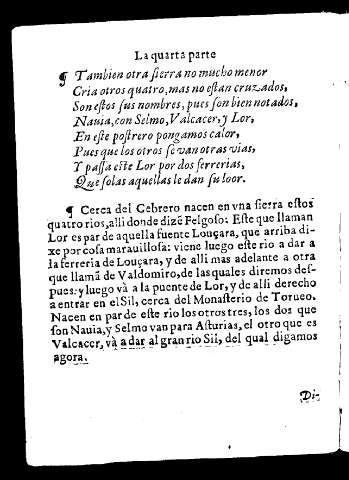 La quarta parte
¶ Tambien otra sierra no mucho menor
Cria otros quatro, mas no estan cruzados,
Son estos sus nombres, pues son bien notados,
Nauia, con Selmo, Valcacer, y Lor,
En este postrero pongamos calor,
Pues que los otros se van otras vias,
Y passa este Lor por dos ferrerias,
Que solas aquellas le dan su loor.
¶ Cerca del Cebrero nacen en vna sierra estos
quatro rios, alli donde dizẽ Felgoso: Este que llaman
Lor es par de aquella fuente Louçara, que arriba di-
xe por cosa marauillosa: viene luego este rio a dar a
la ferreria de Louçara, y de alli mas adelante a otra
que llamã de Valdomiro, de las quales diremos des-
pues: y luego và a la puente de Lor, y de alli derecho
a entrar en el Sil, cerca del Monasterio de Torueo.
Nacen en par de este rio los otros tres, los dos que
son Nauia, y Selmo van para Asturias, el otro que es
Valcacer, và a dar al gran rio Sil, del qual digamos
agora.
Di-